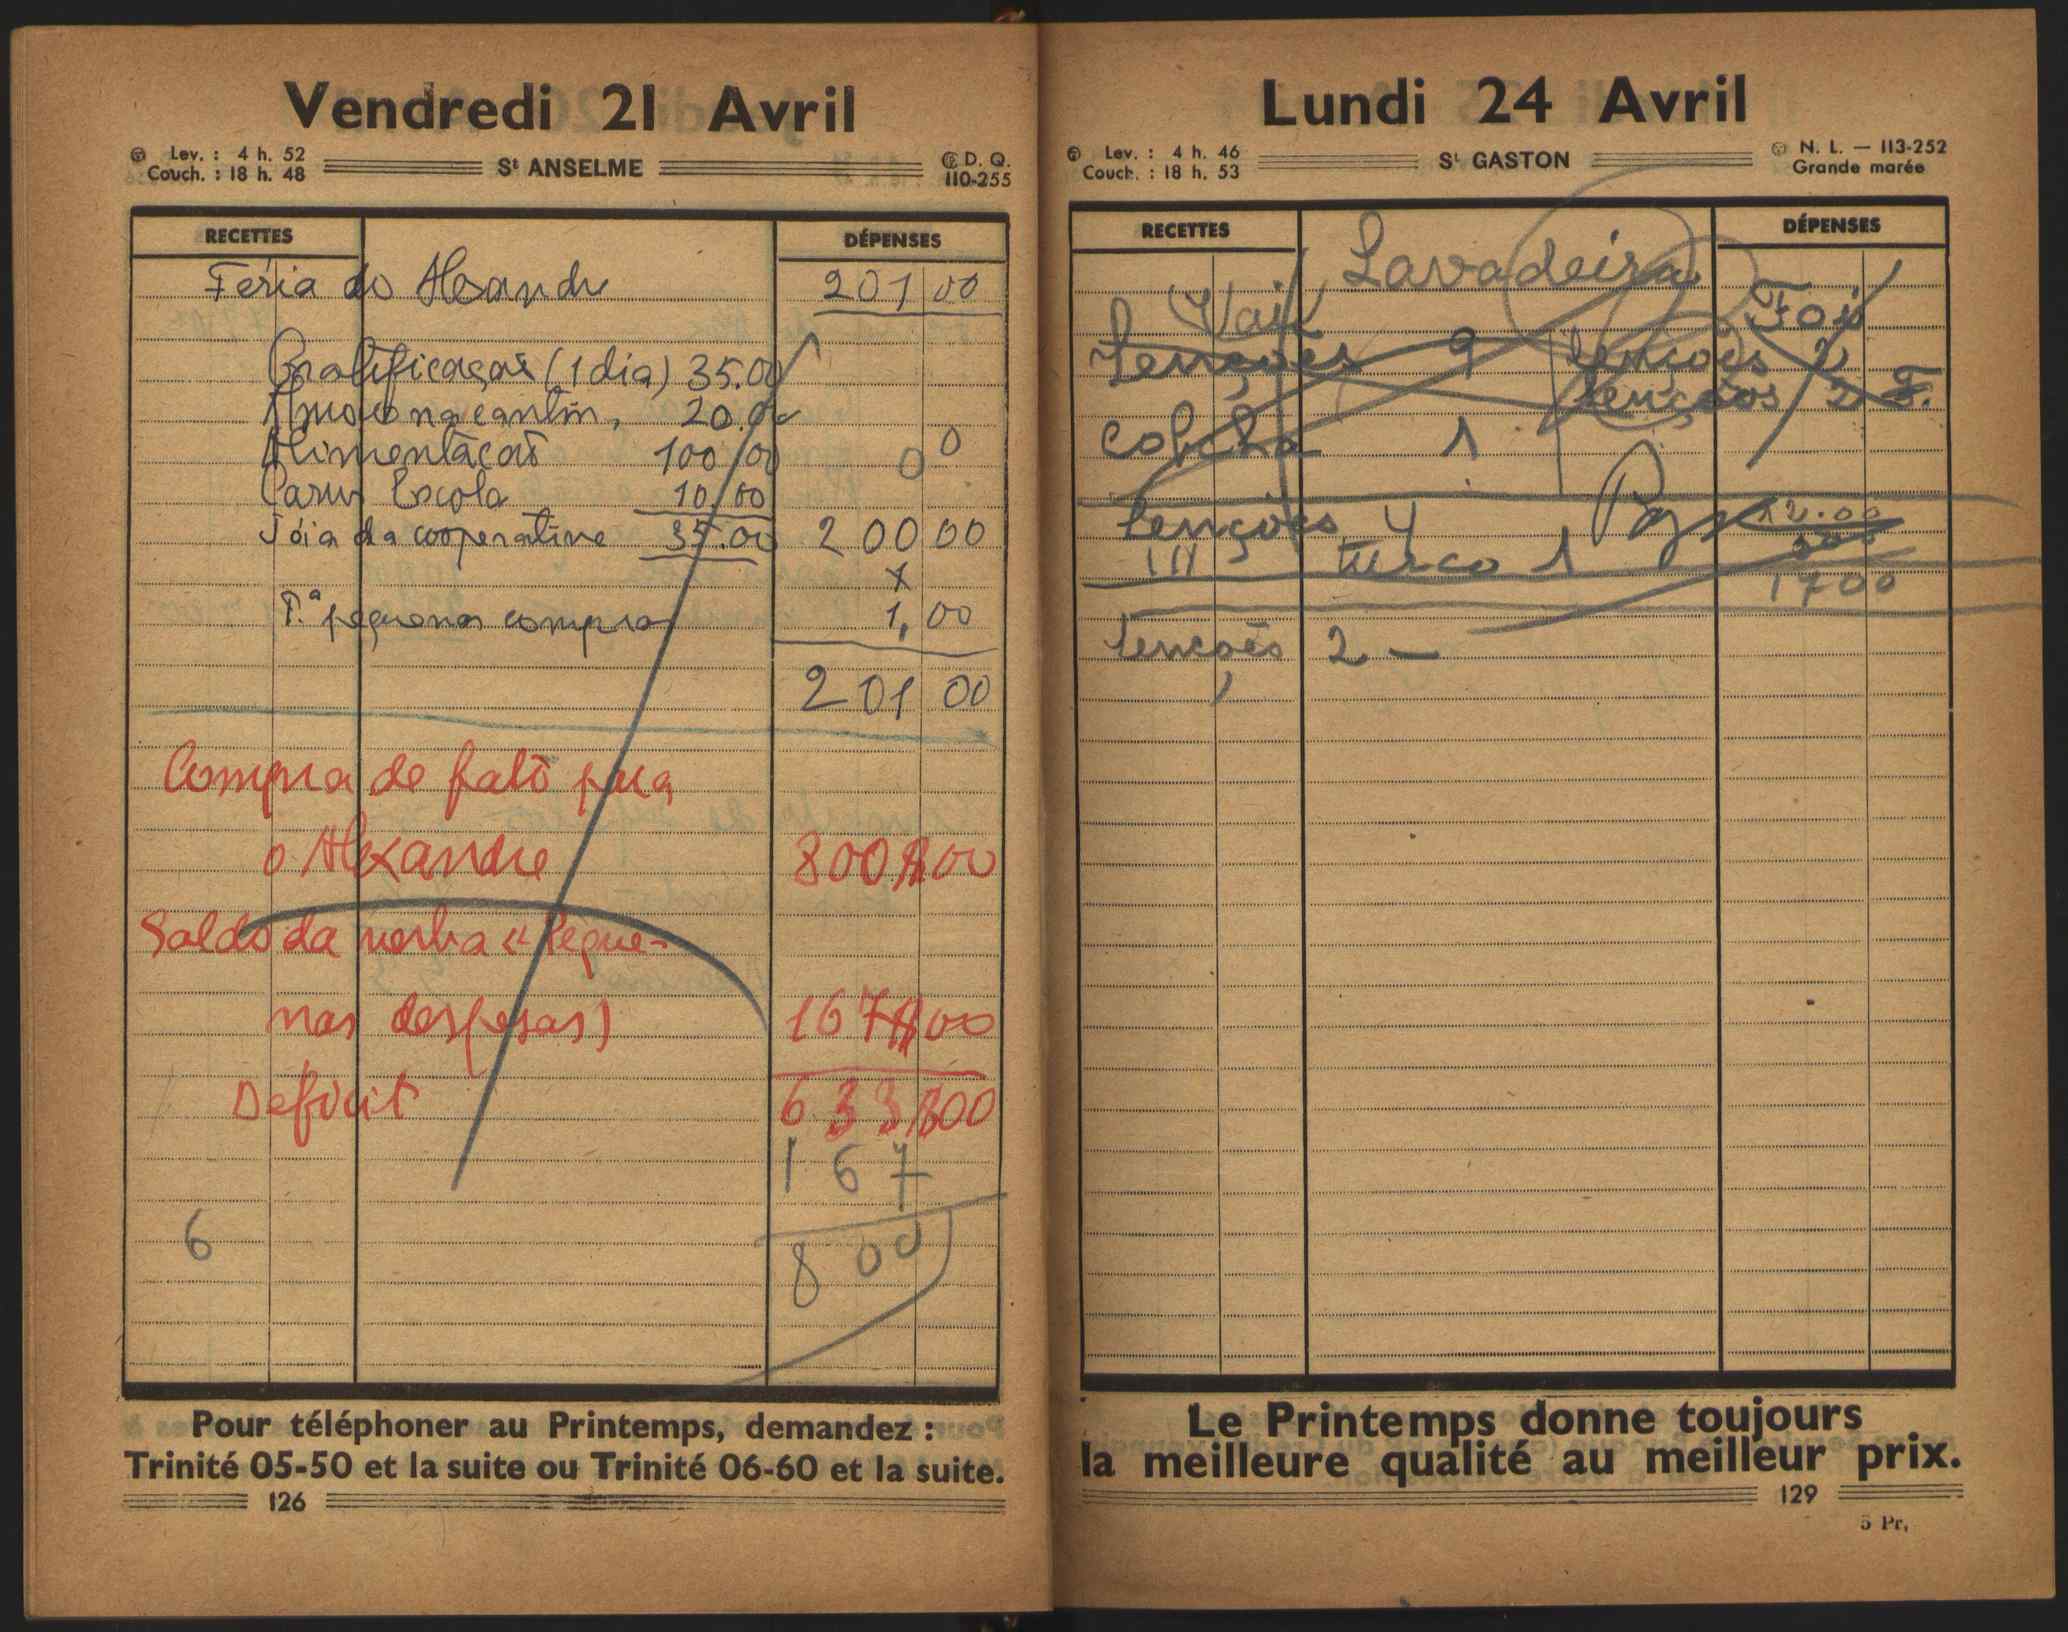 Vendredi 21 Avril
Lev. : 4 h. 52
Couch. : 18 h. 48
St ANSELME
D. Q.
110-255
RECETTES
DÉPENSES
Féria do Alexandre 201 00
Gratificação (1 dia) 35.00
Almoço na cantin, 20.00
Alimentação 100,00 0 0
Para Escola 10.00
Jóia da cooperative 35.00 200 00
x
P.ª pequenas compras 1,00
201 00
Compra de fato para
o Alexandre 800$00
Saldo da verba «Peque-
nas despesas) 167$00
Deficit 633$00
167
6 800
Pour téléphoner au Printemps, demandez :
Trinité 05-50 et la suite ou Trinité 06-60 et la suite.
126
Lundi 24 Avril
Lev. : 4 h. 46
Couch. : 18 h. 53
St GASTON
N. L. — 113-252
Grande marée
RECETTES
DÉPENSES
Lavadeira
Vai Foi
Lençoes 9 lençoes 2
lençoes 2 F.
Colcha 1
lençoes 4 12.00
III turco 1
17 00
lençoes 2 —
Le Printemps donne toujours
la meilleure qualité au meilleur prix.
129
5 Pr.